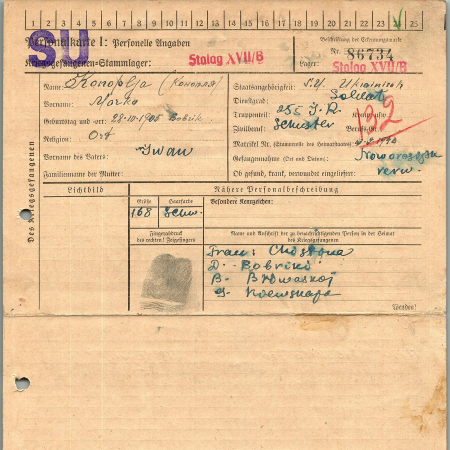 1 2 3 4 5 6 7 8 9 10 11 12 13 14 15 16 17 18 19 20 21 22 23 24 25
SU
Personalkarte I: Personelle Angaben
Kriegsgefangenen-Stammlager: Stalag XVII/B
Beschriftung der Erkennungsmarke
Nr. 86734
Lager: Stalag XVII/B
Des Kriegsgefangenen
Name: Konoplja (Конопля)
Vorname:
Geburtstag und -ort: 28-10-1905 Bobrik
Religion: Ort
Vorname des Vaters: Iwan
Familienname der Mutter:
Staatsangehörigkeit: S.U. Ukrainisch
Dienstgrad: Soldat
Truppenteil: 255 J.R. Komp. usw.:
Zivilberuf: Schuster Berufs-Gr.:
132
Matrikel Nr. (Stammrolle des Heimatstaates):
Gefangennahme (Ort und Datum): Noworossijsk
Ob gesund, krank, verwundet eingeliefert: verw.
Lichtbild
Nähere Personalbeschreibung
Größe Haarfarbe Besondere Kennzeichen:
168 Schw.
Fingerabdruck
des rechten! Zeigefingers
Name und Anschrift der zu benachrichtigenden Person in der Heimat
des Kriegsgefangenen
Frau:
D. Bobriki
B-
G-
Wenden!